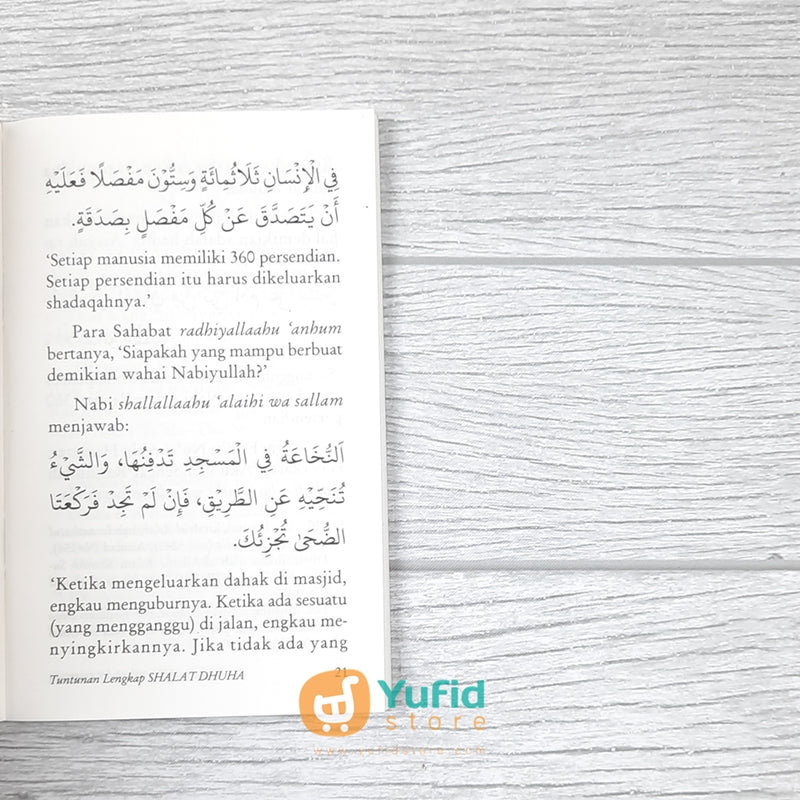 فِي الْإِنْسَانِ ثَلَاثُمِائَةٍ وَسِتُّوْنَ مَفْصَلًا فَعَلَيْهِ
أَنْ يَتَصَدَّقَ عَنْ كُلِّ مَفْصَلٍ بِصَدَقَةٍ.
‘Setiap manusia memiliki 360 persendian.
Setiap persendian itu harus dikeluarkan
shadaqahnya.’
Para Sahabat radhiyallaahu ‘anhum
bertanya, ‘Siapakah yang mampu berbuat
demikian wahai Nabiyullah?’
Nabi shallallaahu ‘alaihi wa sallam
menjawab:
اَلنُّخَاعَةُ فِي الْمَسْجِدِ تَدْفِنُهَا، وَالشَّيْءُ
تُنَحِّيْهِ عَنِ الطَّرِيْقِ، فَإِنْ لَمْ تَجِدْ فَرَكْعَتَا
الضُّحَىٰ تُجْزِئُكَ.
‘Ketika mengeluarkan dahak di masjid,
engkau menguburnya. Ketika ada sesuatu
(yang mengganggu) di jalan, engkau me-
nyingkirkannya. Jika tidak ada yang
Tuntunan Lengkap SHALAT DHUHA 21
Yufid
store
www.yufidstore.com